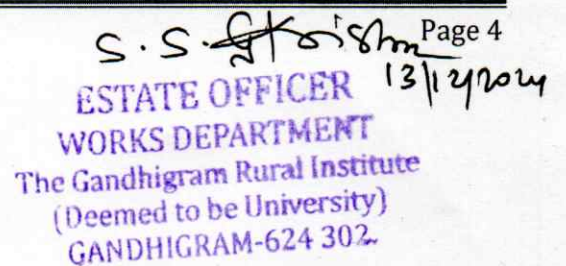 Page 4
S. S.
13/12/2024
ESTATE OFFICER
WORKS DEPARTMENT
The Gandhigram Rural Institute
(Deemed to be University)
GANDHIGRAM-624 302.